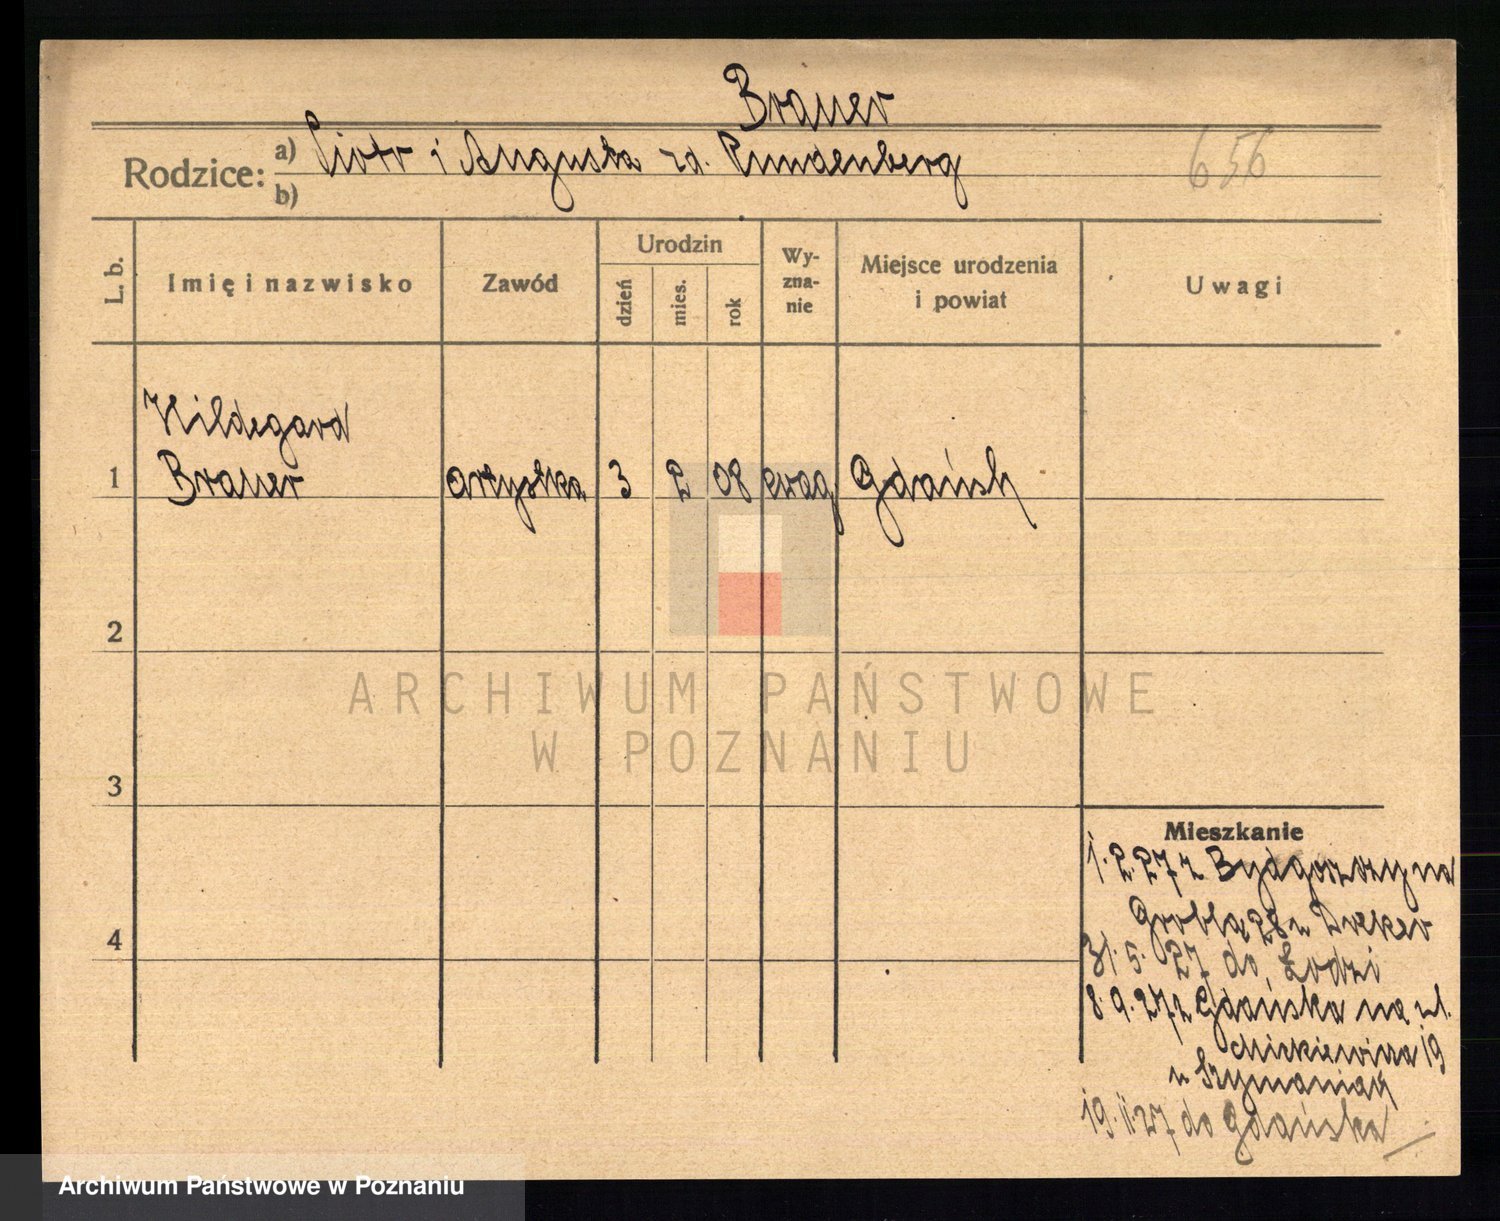 Brauer
Rodzice: a) Piotr i Augusta zd. Rundenberg
b)
656
L. b.
Imię i nazwisko
Zawód
Urodzin
dzień
mies.
rok
Wy-
zna-
nie
Miejsce urodzenia
i powiat
Uwagi
Hildegard
1 Brauer artystka 3 2 08 ewag Gdańsk
2
3
4
ARCHIWUM PAŃSTWOWE
W POZNANIU
Mieszkanie
1. 2. 27 z Bydgoszczy na
Grobla 28 u Dreker
31. 5. 27 do Łodzi
8. 9. 27 z Gdańska na ul.
Mickiewicza 19
u Szymaniak
19. 11. 27 do Gdańska
Archiwum Państwowe w Poznaniu